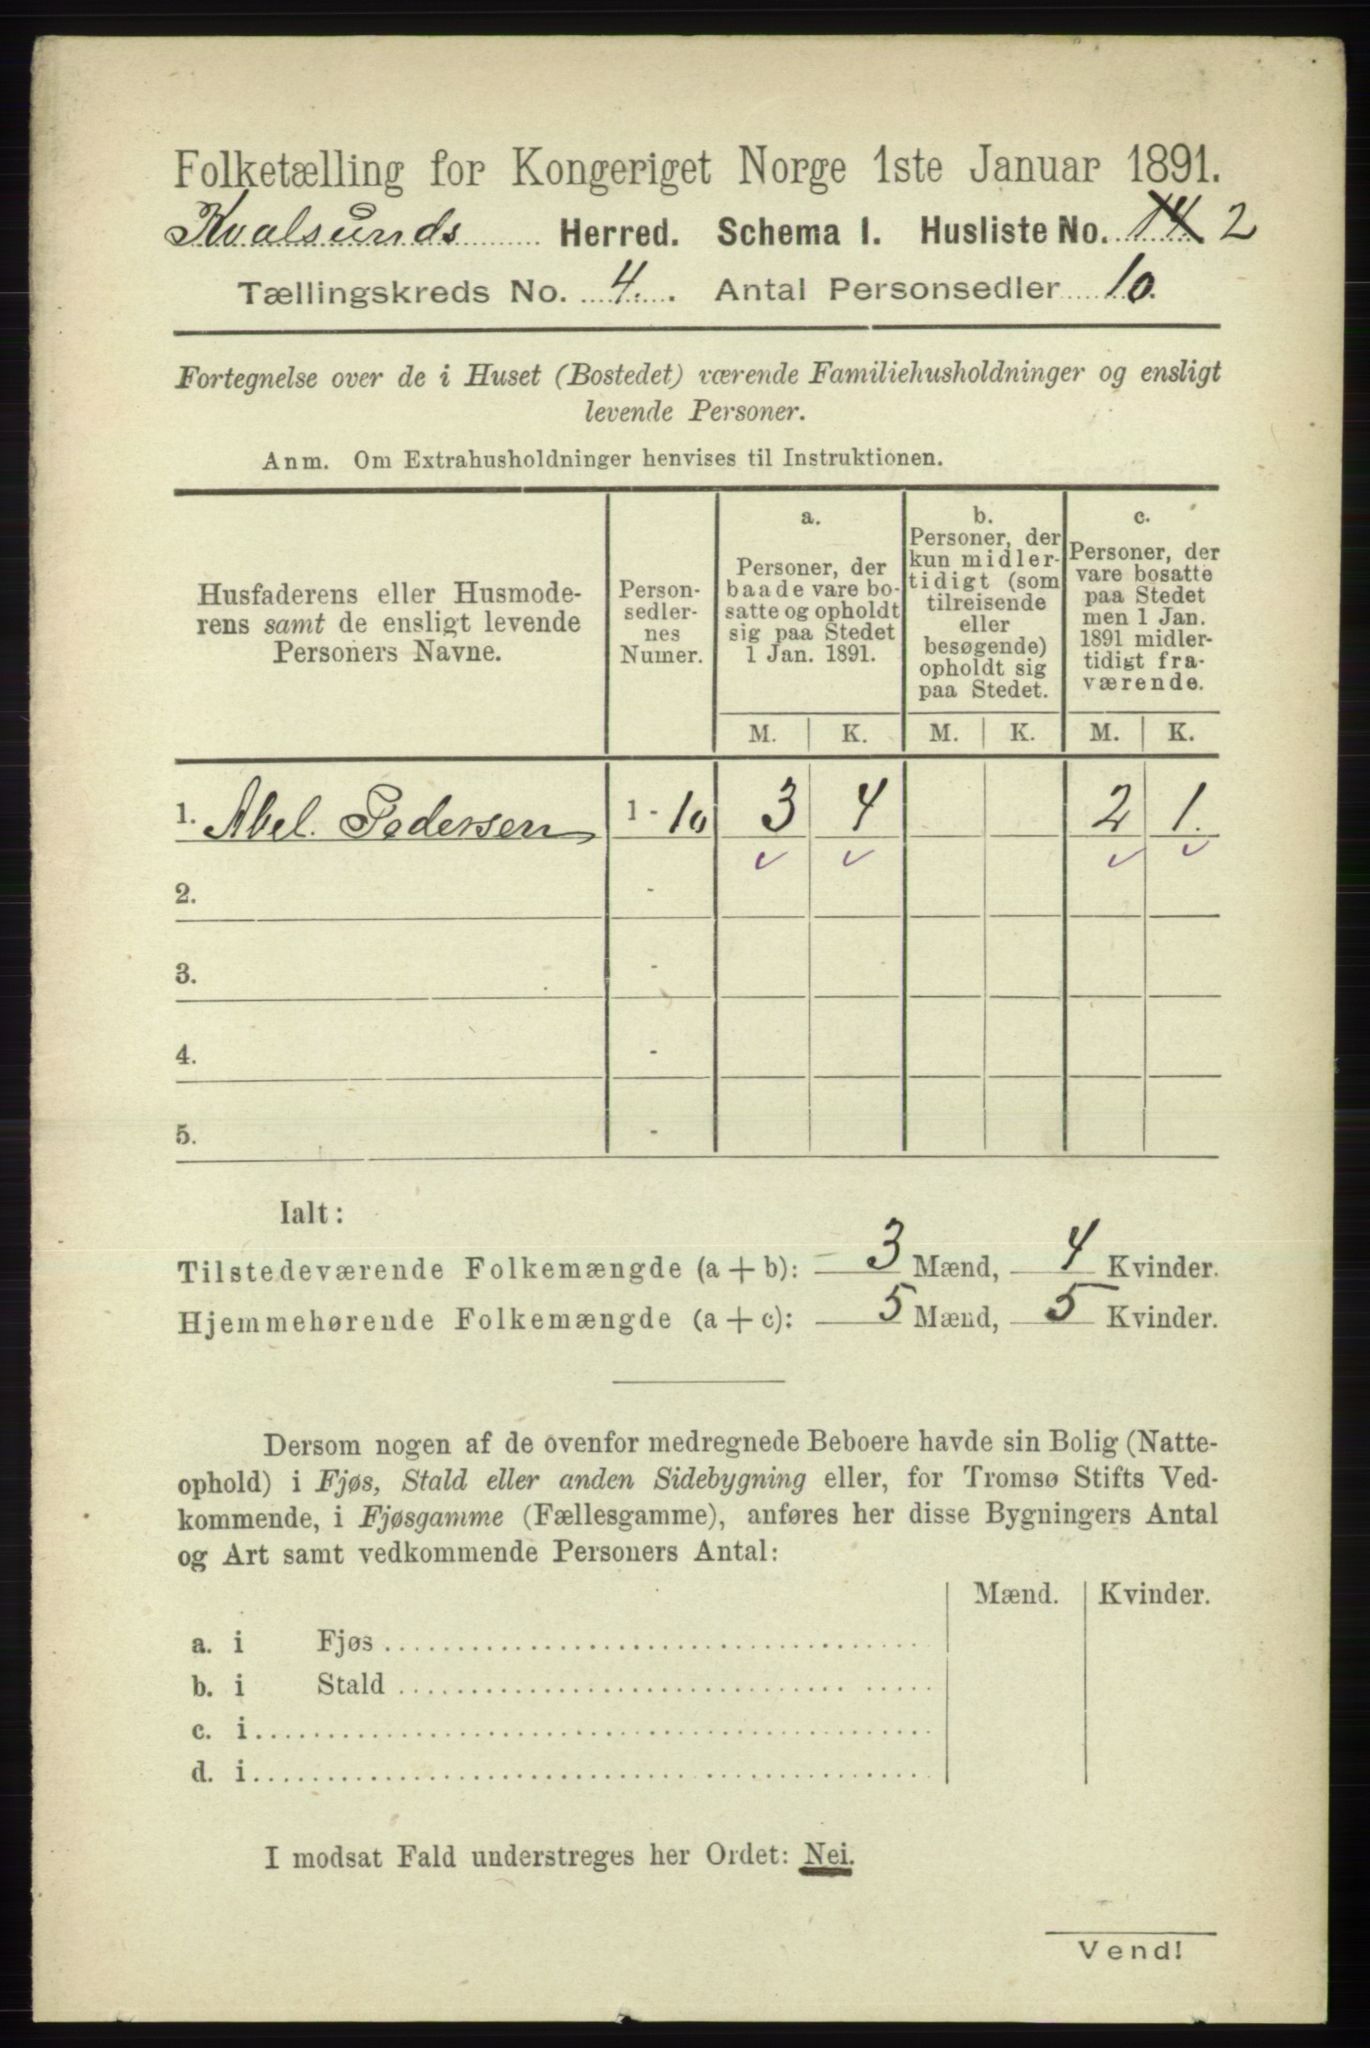 Folketælling for Kongeriget Norge 1ste Januar 1891.
Kvalsunds Herred. Schema I. Husliste No. 14 2
Tællingskreds No. 4. Antal Personsedler 10.
Fortegnelse over de i Huset (Bostedet) værende Familiehusholdninger og ensligt
levende Personer.
Anm. Om Extrahusholdninger henvises til Instruktionen.
Husfaderens eller Husmode-
rens samt de ensligt levende
Personers Navne.
Person-
sedler-
nes
Numer.
a.
Personer, der
baade vare bo-
satte og opholdt
sig paa Stedet
1 Jan. 1891.
b.
Personer, der
kun midler-
tidigt (som
tilreisende
eller
besøgende)
opholdt sig
paa Stedet.
c.
Personer, der
vare bosatte
paa Stedet
men 1 Jan.
1891 midler-
tidigt fra-
værende.
M. K. M. K. M. K.
1. Abel. Pedersen 1 - 10 3 4 2 1.
2. -
3. -
4. -
5. -
Ialt:
Tilstedeværende Folkemængde (a + b): 3 Mænd, 4 Kvinder.
Hjemmehørende Folkemængde (a + c): 5 Mænd, 5 Kvinder.
Dersom nogen af de ovenfor medregnede Beboere havde sin Bolig (Natte-
ophold) i Fjøs, Stald eller anden Sidebygning eller, for Tromsø Stifts Ved-
kommende, i Fjøsgamme (Fællesgamme), anføres her disse Bygningers Antal
og Art samt vedkommende Personers Antal:
Mænd. Kvinder.
a. i Fjøs
b. i Stald
c. i
d. i
I modsat Fald understreges her Ordet: Nei.
Vend!